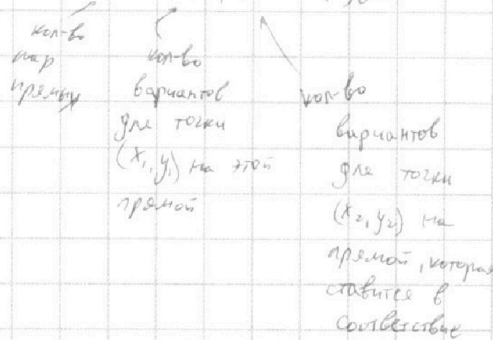 кол-во
пар
прямых
кол-во
вариантов
для точки
(x₁, y₁) на этой
прямой
кол-во
вариантов
для точки
(x₂, y₂) на
прямой, которая
ставится в
соответствие